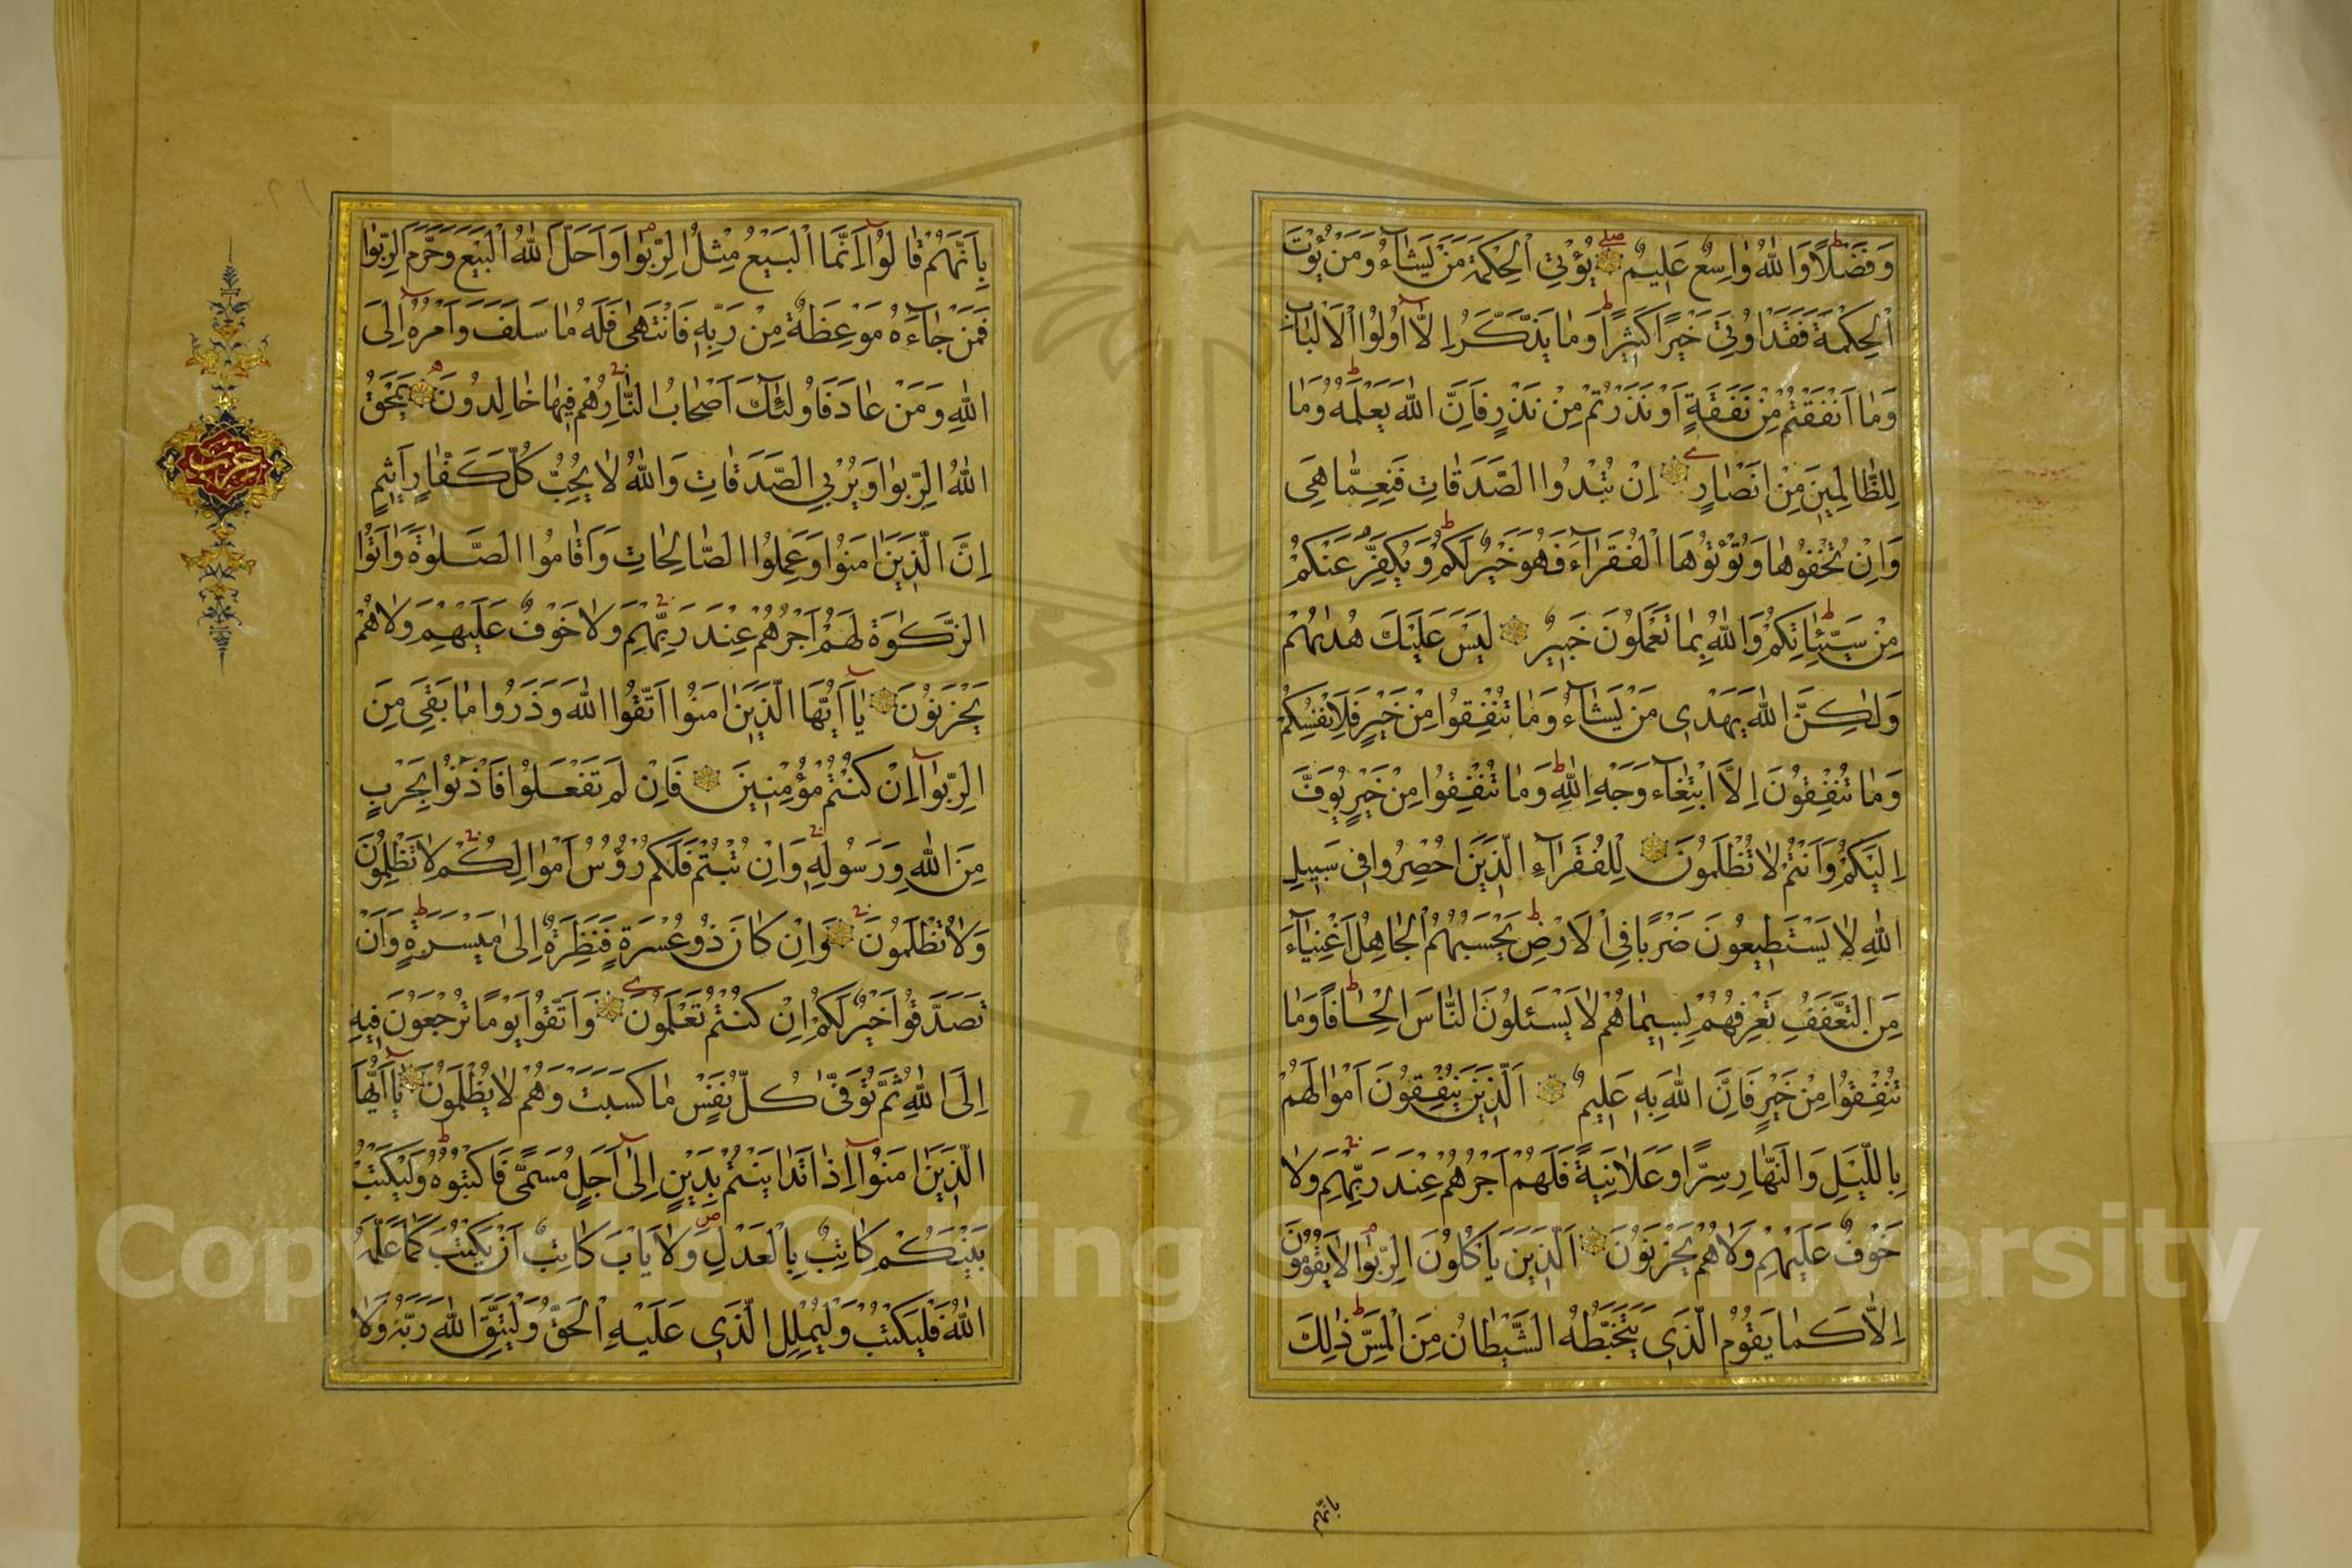 وَفَضْلًا وَاللّٰهُ وَاسِعٌ عَلِيمٌ يُؤْتِي الْحِكْمَةَ مَنْ يَشَاءُ وَمَنْ يُؤْتَ
الْحِكْمَةَ فَقَدْ اُوتِيَ خَيْرًا كَثِيرًا وَمَا يَذَّكَّرُ اِلَّا اُولُوا الْاَلْبَابِ
وَمَا اَنْفَقْتُمْ مِنْ نَفَقَةٍ اَوْ نَذَرْتُمْ مِنْ نَذْرٍ فَاِنَّ اللّٰهَ يَعْلَمُهُ وَمَا
لِلظَّالِمِينَ مِنْ اَنْصَارٍ اِنْ تُبْدُوا الصَّدَقَاتِ فَنِعِمَّا هِيَ
وَاِنْ تُخْفُوهَا وَتُؤْتُوهَا الْفُقَرَاءَ فَهُوَ خَيْرٌ لَكُمْ وَيُكَفِّرُ عَنْكُمْ
مِنْ سَيِّئَاتِكُمْ وَاللّٰهُ بِمَا تَعْمَلُونَ خَبِيرٌ لَيْسَ عَلَيْكَ هُدٰيهُمْ
وَلٰكِنَّ اللّٰهَ يَهْدِي مَنْ يَشَاءُ وَمَا تُنْفِقُوا مِنْ خَيْرٍ فَلِاَنْفُسِكُمْ
وَمَا تُنْفِقُونَ اِلَّا ابْتِغَاءَ وَجْهِ اللّٰهِ وَمَا تُنْفِقُوا مِنْ خَيْرٍ يُوَفَّ
اِلَيْكُمْ وَاَنْتُمْ لَا تُظْلَمُونَ لِلْفُقَرَاءِ الَّذِينَ اُحْصِرُوا فِي سَبِيلِ
اللّٰهِ لَا يَسْتَطِيعُونَ ضَرْبًا فِي الْاَرْضِ يَحْسَبُهُمُ الْجَاهِلُ اَغْنِيَاءَ
مِنَ التَّعَفُّفِ تَعْرِفُهُمْ بِسِيمَاهُمْ لَا يَسْـَٔلُونَ النَّاسَ اِلْحَافًا وَمَا
تُنْفِقُوا مِنْ خَيْرٍ فَاِنَّ اللّٰهَ بِهِ عَلِيمٌ اَلَّذِينَ يُنْفِقُونَ اَمْوَالَهُمْ
بِاللَّيْلِ وَالنَّهَارِ سِرًّا وَعَلَانِيَةً فَلَهُمْ اَجْرُهُمْ عِنْدَ رَبِّهِمْ وَلَا
خَوْفٌ عَلَيْهِمْ وَلَا هُمْ يَحْزَنُونَ اَلَّذِينَ يَاْكُلُونَ الرِّبٰوا لَا يَقُومُونَ
اِلَّا كَمَا يَقُومُ الَّذِي يَتَخَبَّطُهُ الشَّيْطَانُ مِنَ الْمَسِّ ذٰلِكَ
بِاَنَّهُمْ
بِاَنَّهُمْ قَالُوا اِنَّمَا الْبَيْعُ مِثْلُ الرِّبٰوا وَاَحَلَّ اللّٰهُ الْبَيْعَ وَحَرَّمَ الرِّبٰوا
فَمَنْ جَاءَهُ مَوْعِظَةٌ مِنْ رَبِّهِ فَانْتَهٰى فَلَهُ مَا سَلَفَ وَاَمْرُهُ اِلَى
اللّٰهِ وَمَنْ عَادَ فَاُولٰئِكَ اَصْحَابُ النَّارِ هُمْ فِيهَا خَالِدُونَ يَمْحَقُ
اللّٰهُ الرِّبٰوا وَيُرْبِي الصَّدَقَاتِ وَاللّٰهُ لَا يُحِبُّ كُلَّ كَفَّارٍ اَثِيمٍ
اِنَّ الَّذِينَ اٰمَنُوا وَعَمِلُوا الصَّالِحَاتِ وَاَقَامُوا الصَّلٰوةَ وَاٰتَوُا
الزَّكٰوةَ لَهُمْ اَجْرُهُمْ عِنْدَ رَبِّهِمْ وَلَا خَوْفٌ عَلَيْهِمْ وَلَا هُمْ
يَحْزَنُونَ يَا اَيُّهَا الَّذِينَ اٰمَنُوا اتَّقُوا اللّٰهَ وَذَرُوا مَا بَقِيَ مِنَ
الرِّبٰوا اِنْ كُنْتُمْ مُؤْمِنِينَ فَاِنْ لَمْ تَفْعَلُوا فَاْذَنُوا بِحَرْبٍ
مِنَ اللّٰهِ وَرَسُولِهِ وَاِنْ تُبْتُمْ فَلَكُمْ رُؤُسُ اَمْوَالِكُمْ لَا تَظْلِمُونَ
وَلَا تُظْلَمُونَ وَاِنْ كَانَ ذُو عُسْرَةٍ فَنَظِرَةٌ اِلٰى مَيْسَرَةٍ وَاَنْ
تَصَدَّقُوا خَيْرٌ لَكُمْ اِنْ كُنْتُمْ تَعْلَمُونَ وَاتَّقُوا يَوْمًا تُرْجَعُونَ فِيهِ
اِلَى اللّٰهِ ثُمَّ تُوَفّٰى كُلُّ نَفْسٍ مَا كَسَبَتْ وَهُمْ لَا يُظْلَمُونَ يَا اَيُّهَا
الَّذِينَ اٰمَنُوا اِذَا تَدَايَنْتُمْ بِدَيْنٍ اِلٰى اَجَلٍ مُسَمًّى فَاكْتُبُوهُ وَلْيَكْتُبْ
بَيْنَكُمْ كَاتِبٌ بِالْعَدْلِ وَلَا يَاْبَ كَاتِبٌ اَنْ يَكْتُبَ كَمَا عَلَّمَهُ
اللّٰهُ فَلْيَكْتُبْ وَلْيُمْلِلِ الَّذِي عَلَيْهِ الْحَقُّ وَلْيَتَّقِ اللّٰهَ رَبَّهُ وَلَا
حزب
Copyright © King Saud University
1957